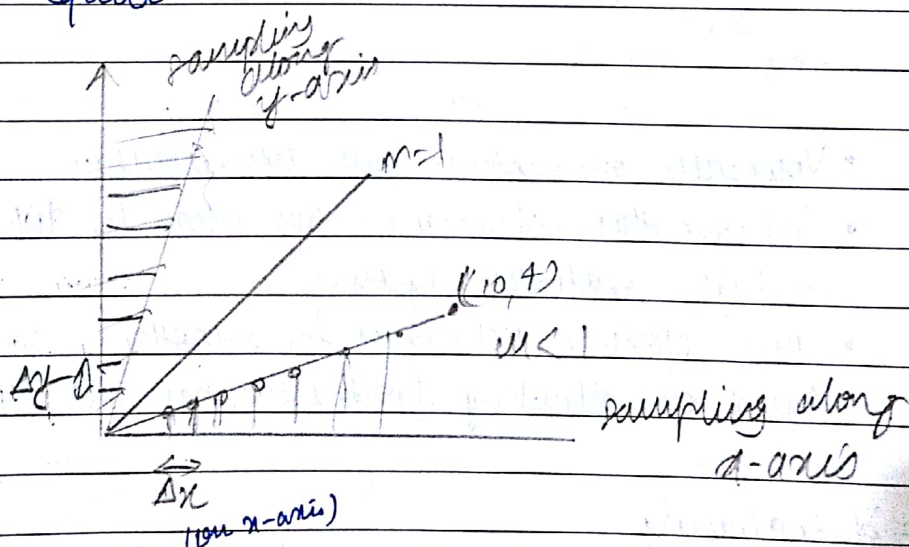 sampling
along
y-axis
m=1
(10,4)
m<1
Δy=1
sampling along
x-axis
Δx
(on x-axis)